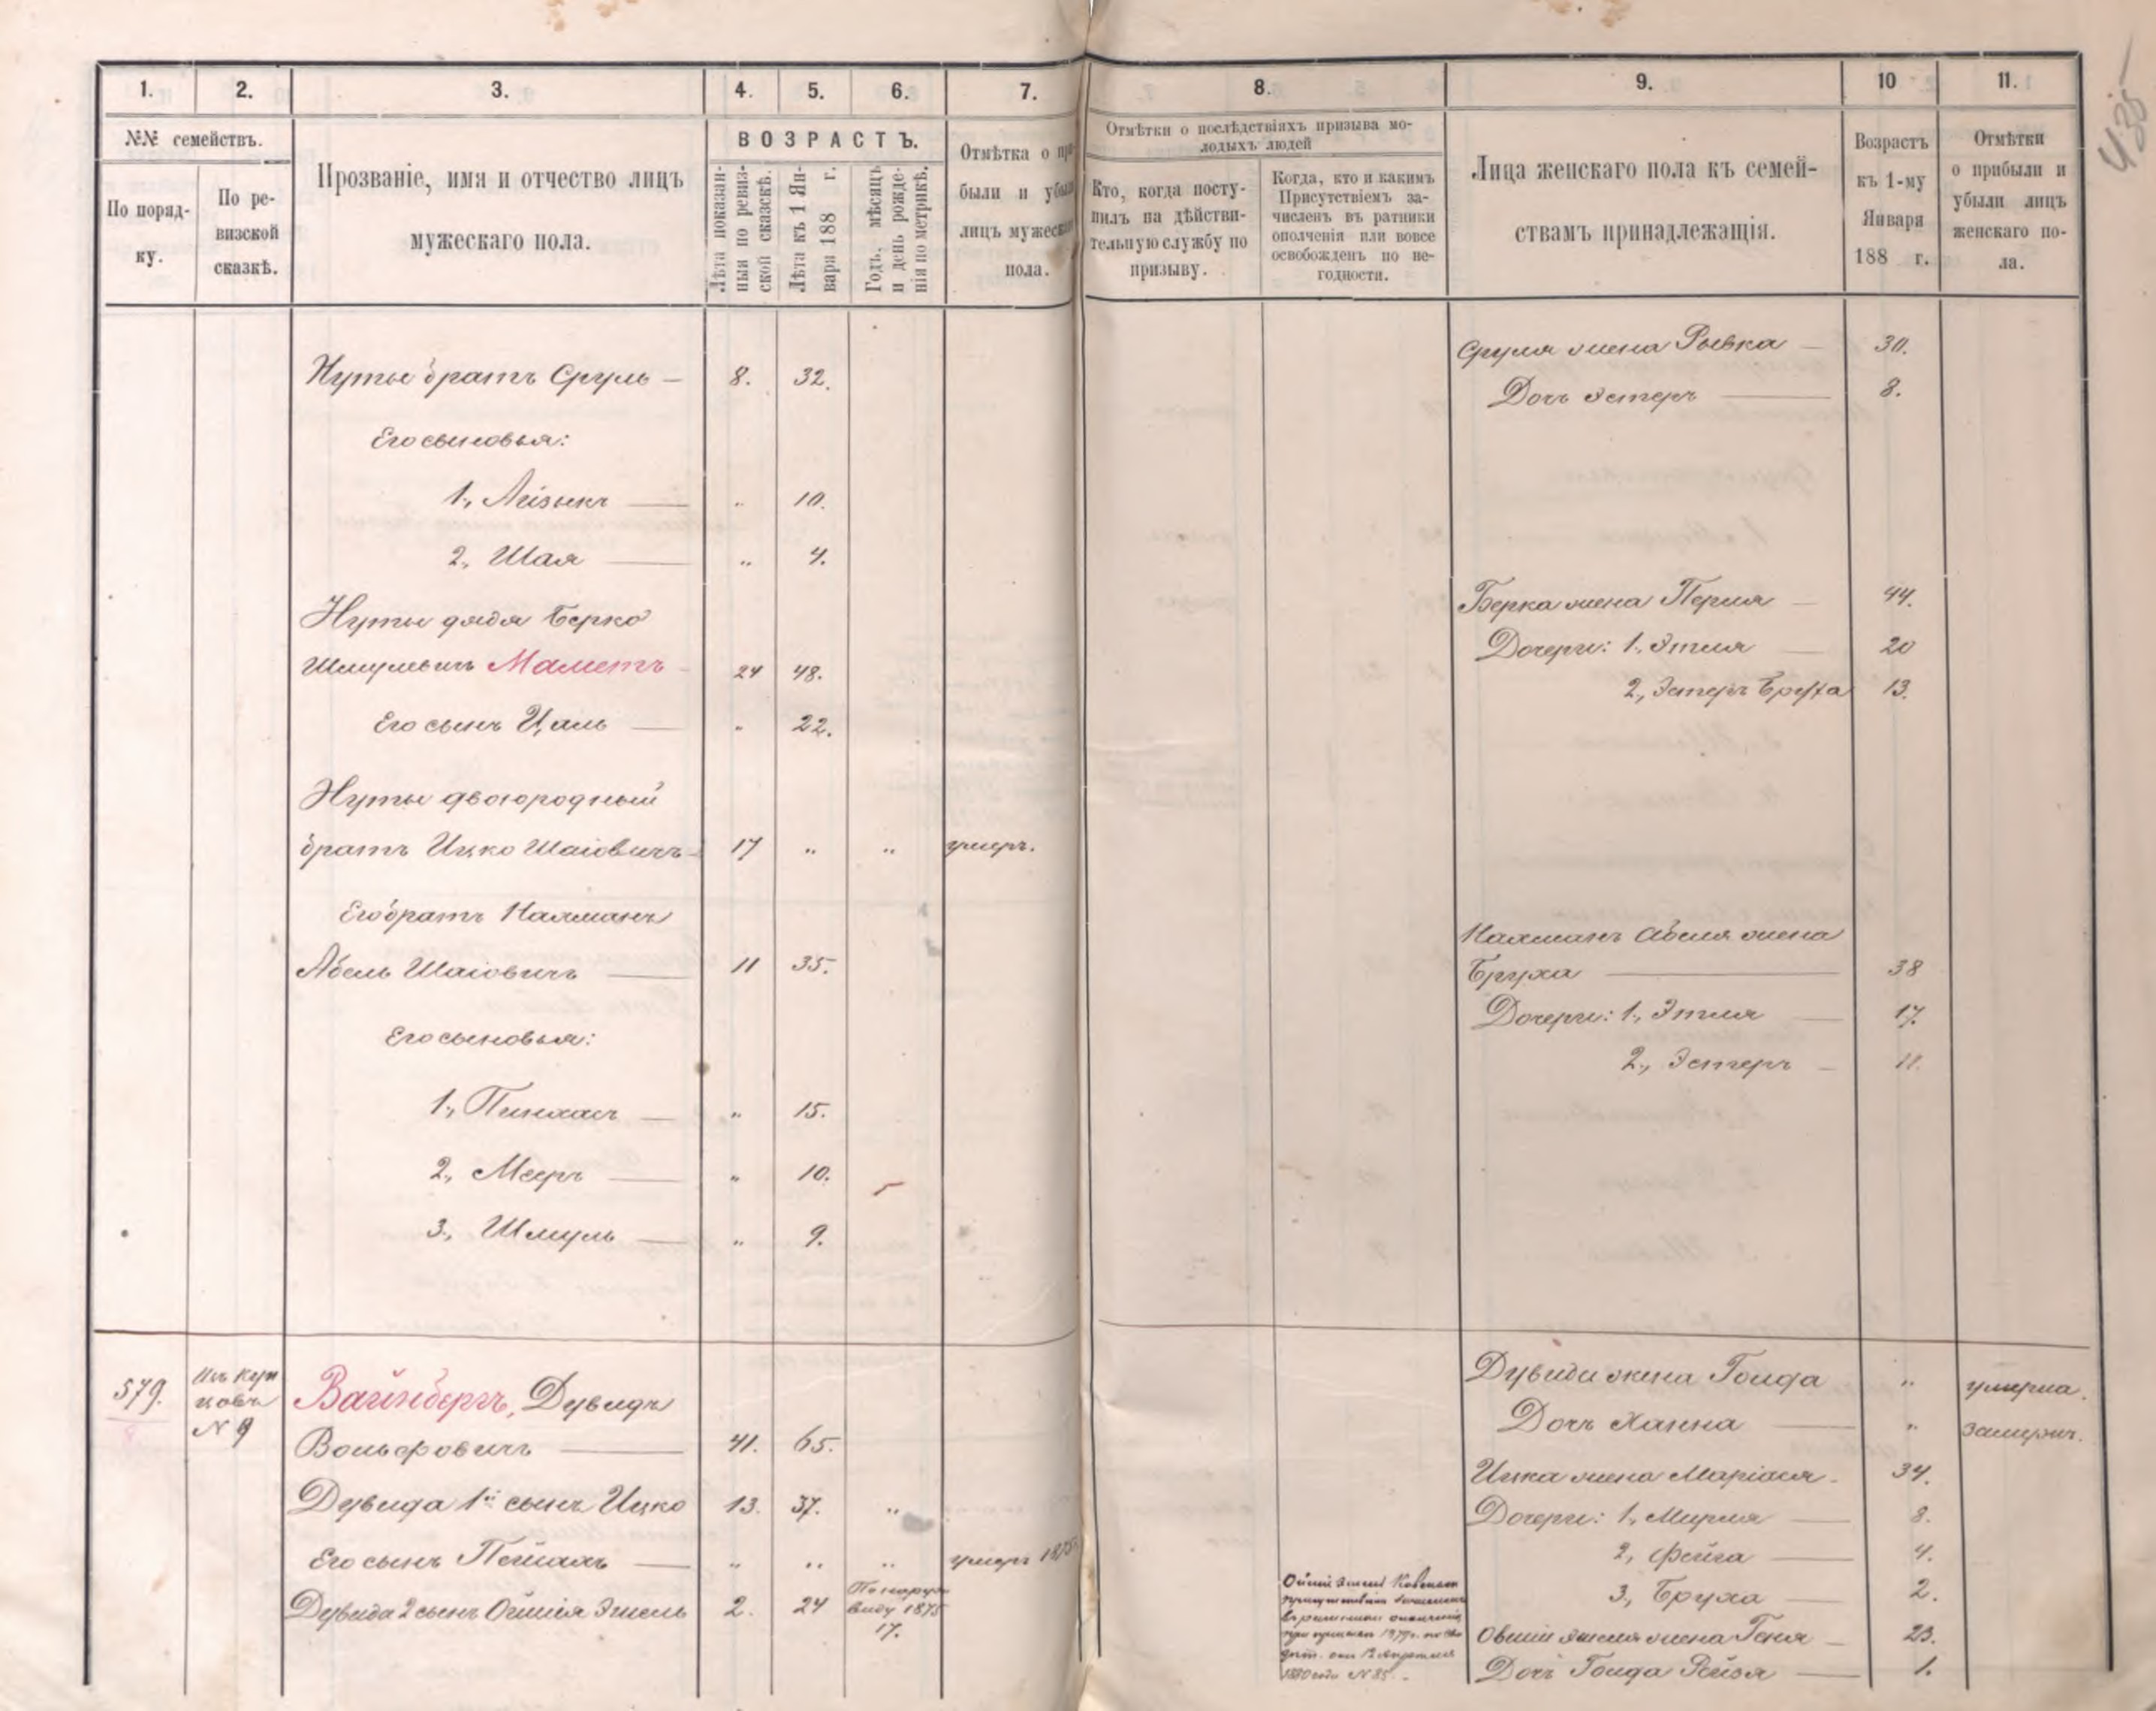 435
1. 2. 3. 4. 5. 6. 7. 8. 9. 10 11.
№№ семействъ.
По поряд-
ку.
По ре-
визской
сказкѣ.
Прозваніе, имя и отчество лицъ
мужескаго пола.
ВОЗРАСТЪ.
Лѣта показан-
ныя по ревиз-
ской сказскѣ.
Лѣта къ 1 Ян-
варя 188 г.
Годъ, мѣсяцъ
и день рожде-
нія по метрикѣ.
Отмѣтка о при
были и убыли
лицъ мужескаго
пола.
Отмѣтки о послѣдствіяхъ призыва мо-
лодыхъ людей
Кто, когда посту-
пилъ на дѣйстви-
тельную службу по
призыву.
Когда, кто и какимъ
Присутствіемъ за-
численъ въ ратники
ополченія или вовсе
освобожденъ по не-
годности.
Лица женскаго пола къ семей-
ствамъ принадлежащія.
Возрастъ
къ 1-му
Января
188 г.
Отмѣтки
о прибыли и
убыли лицъ
женскаго по-
ла.
Нуты братъ Сруль — 8. 32.
Его сыновья:
1., Айзыкъ — " 10.
2., Шая — " 4.
Нуты дядя Берко
Шмулевичъ Маметъ - 24 48.
Его сынъ Цаль — " 22.
Нуты двоюродный
братъ Ицко Шаіовичъ - 17 " " умеръ.
Его братъ Нахманъ
Абель Шаіовичъ — 11 35.
Его сыновья:
1., Пинхасъ — " 15.
2., Мееръ — " 10.
3., Шмуль — " 9.
579. Изъ Куп
цовъ
№ 9
Вайнбергъ, Дувидъ
Вольфовичъ — 41. 65.
Дувида 1й сынъ Ицко 13. 37. "
Его сынъ Пейсахъ — " " " умеръ 1875г.
Дувида 2 сынъ Ойшія Зисель 2. 24 По наруж
виду 1875
17.
Сруля жена Рывка — 30.
Дочь Эстеръ — 8.
Берка жена Перля — 44.
Дочери: 1., Этля — 20
2., Эстеръ Бруха 13.
Нахманъ Абеля жена
Бруха — 38
Дочери: 1., Этля — 17.
2., Эстеръ — 11.
Дувида жена Голда " умерла.
Дочь Ханна — " замужъ.
Ицка жена Маріася - 34.
Дочери: 1., Мирля — 8.
2., Фейга — 4.
3., Бруха — 2.
жена Геня — 23.
Дочь Голда Рейзя — 1.
1880 года № 85.